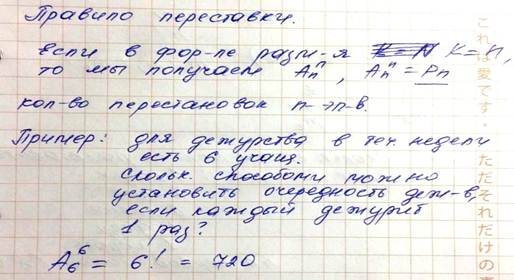 Правило переставки.
Если в фор-ле разм-я K = n,
то мы получаем Aₙⁿ, Aₙⁿ = Pₙ
кол-во перестановок n-эл-в.
Пример: для дежурства в теч. недели
есть 6 учащ.
Скольк. способами можно
установить очередность деж-в,
если каждый дежурит
1 раз?
A₆⁶ = 6! = 720
これは愛です。ただそれだけの